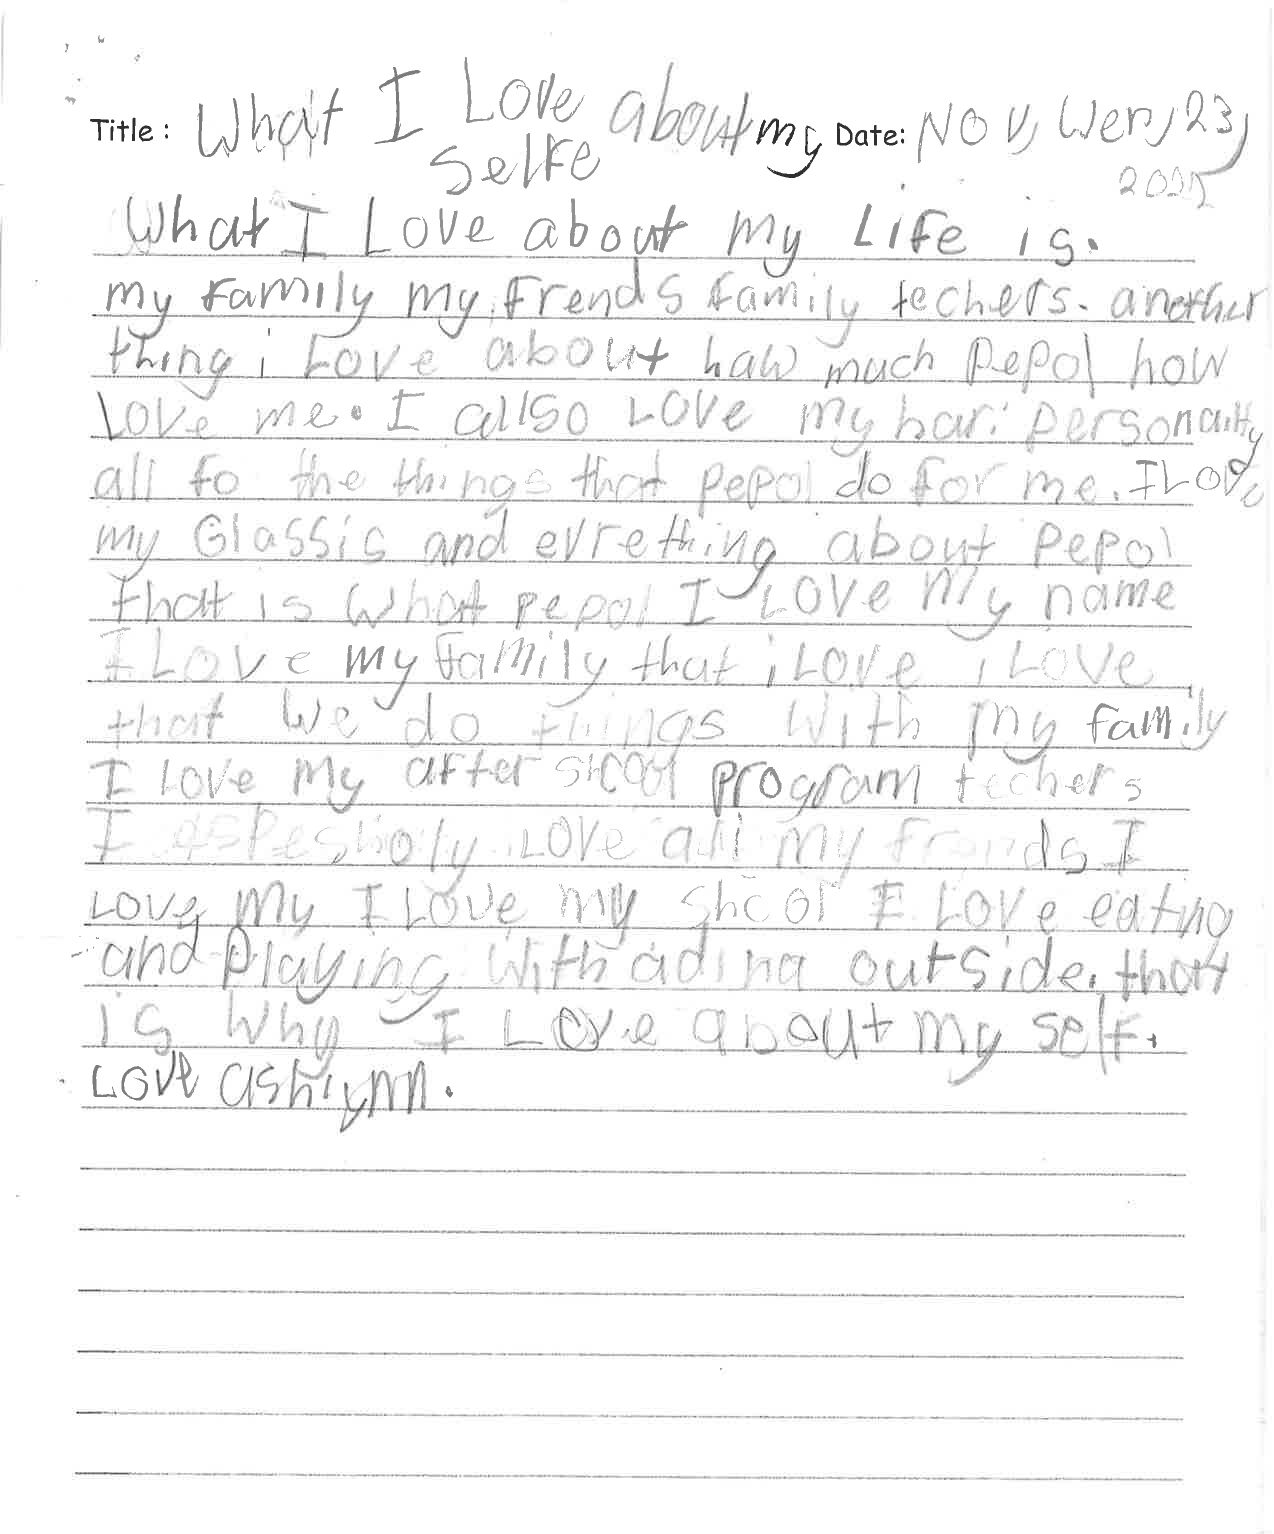 Title: What I Love about my Date: Nov, Wen, 23,
selfe
What I Love about my Life is.
my family my frends family techers. another
thing i Love about haw much pepol how
Love me. I allso Love my har. personality
all fo the things that pepol do for me. I Love
my Glassis and evrething about pepol
that is What pepol I Love My name
I Love my family that i Love i Love
that We do things With my family
I Love My after shcool program techers
I espesholy Love all my frends I
Love My I Love my shcool I Love eatng
and playing With adina outside. that
is Why I Love about my self.
Love ashlynn.